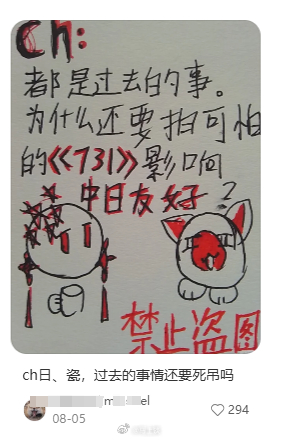 ch:
都是过去的事。
为什么还要拍可怕
的《《731》》影响
中日友好?
禁止盗图
ch日、瓷，过去的事情还要死吊吗
08-05
294